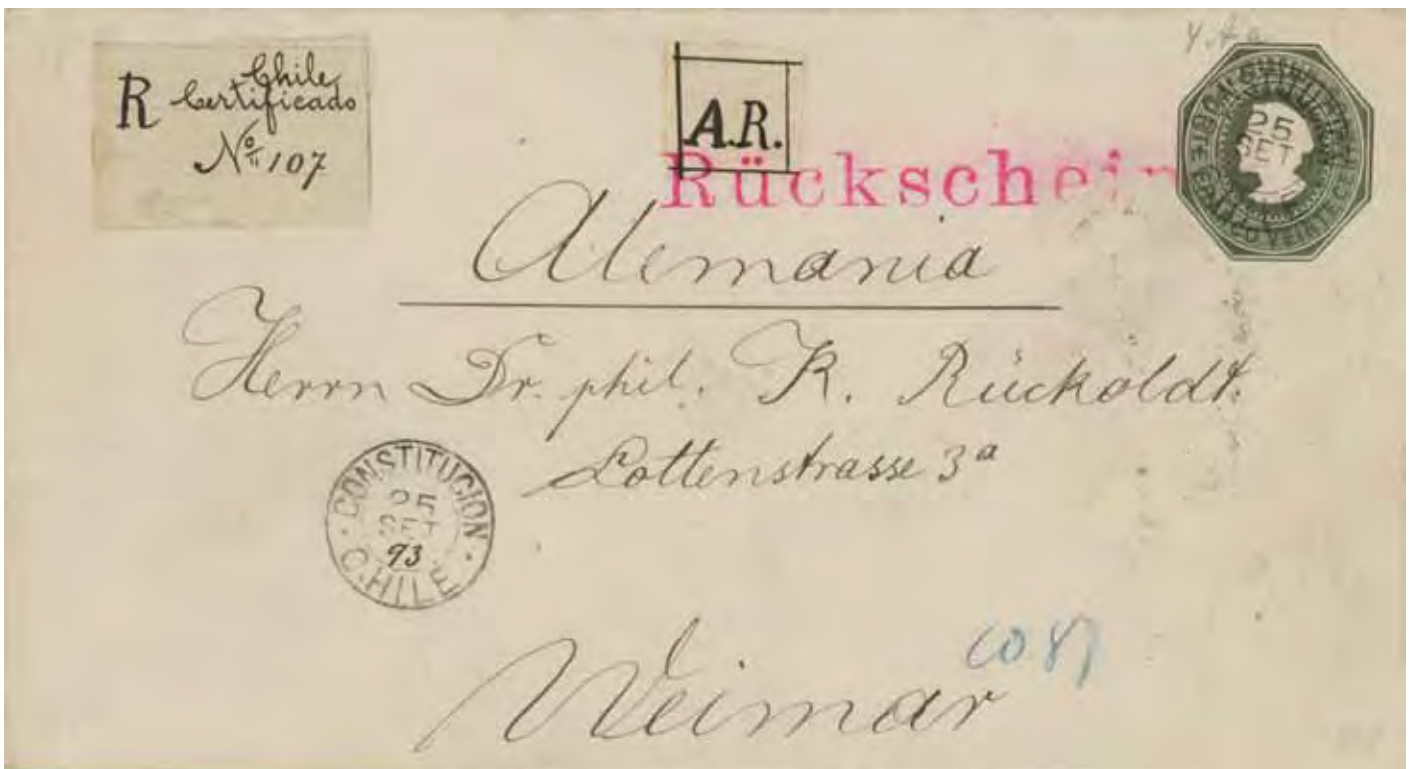 R Chile
Certificado
No 107
A.R.
Rückschein
25
SET
Alemania
Herrn Dr. phil. R. Rückoldt.
Lottenstrasse 3a
CONSTITUCION
25
SET
93
CHILE
Weimar